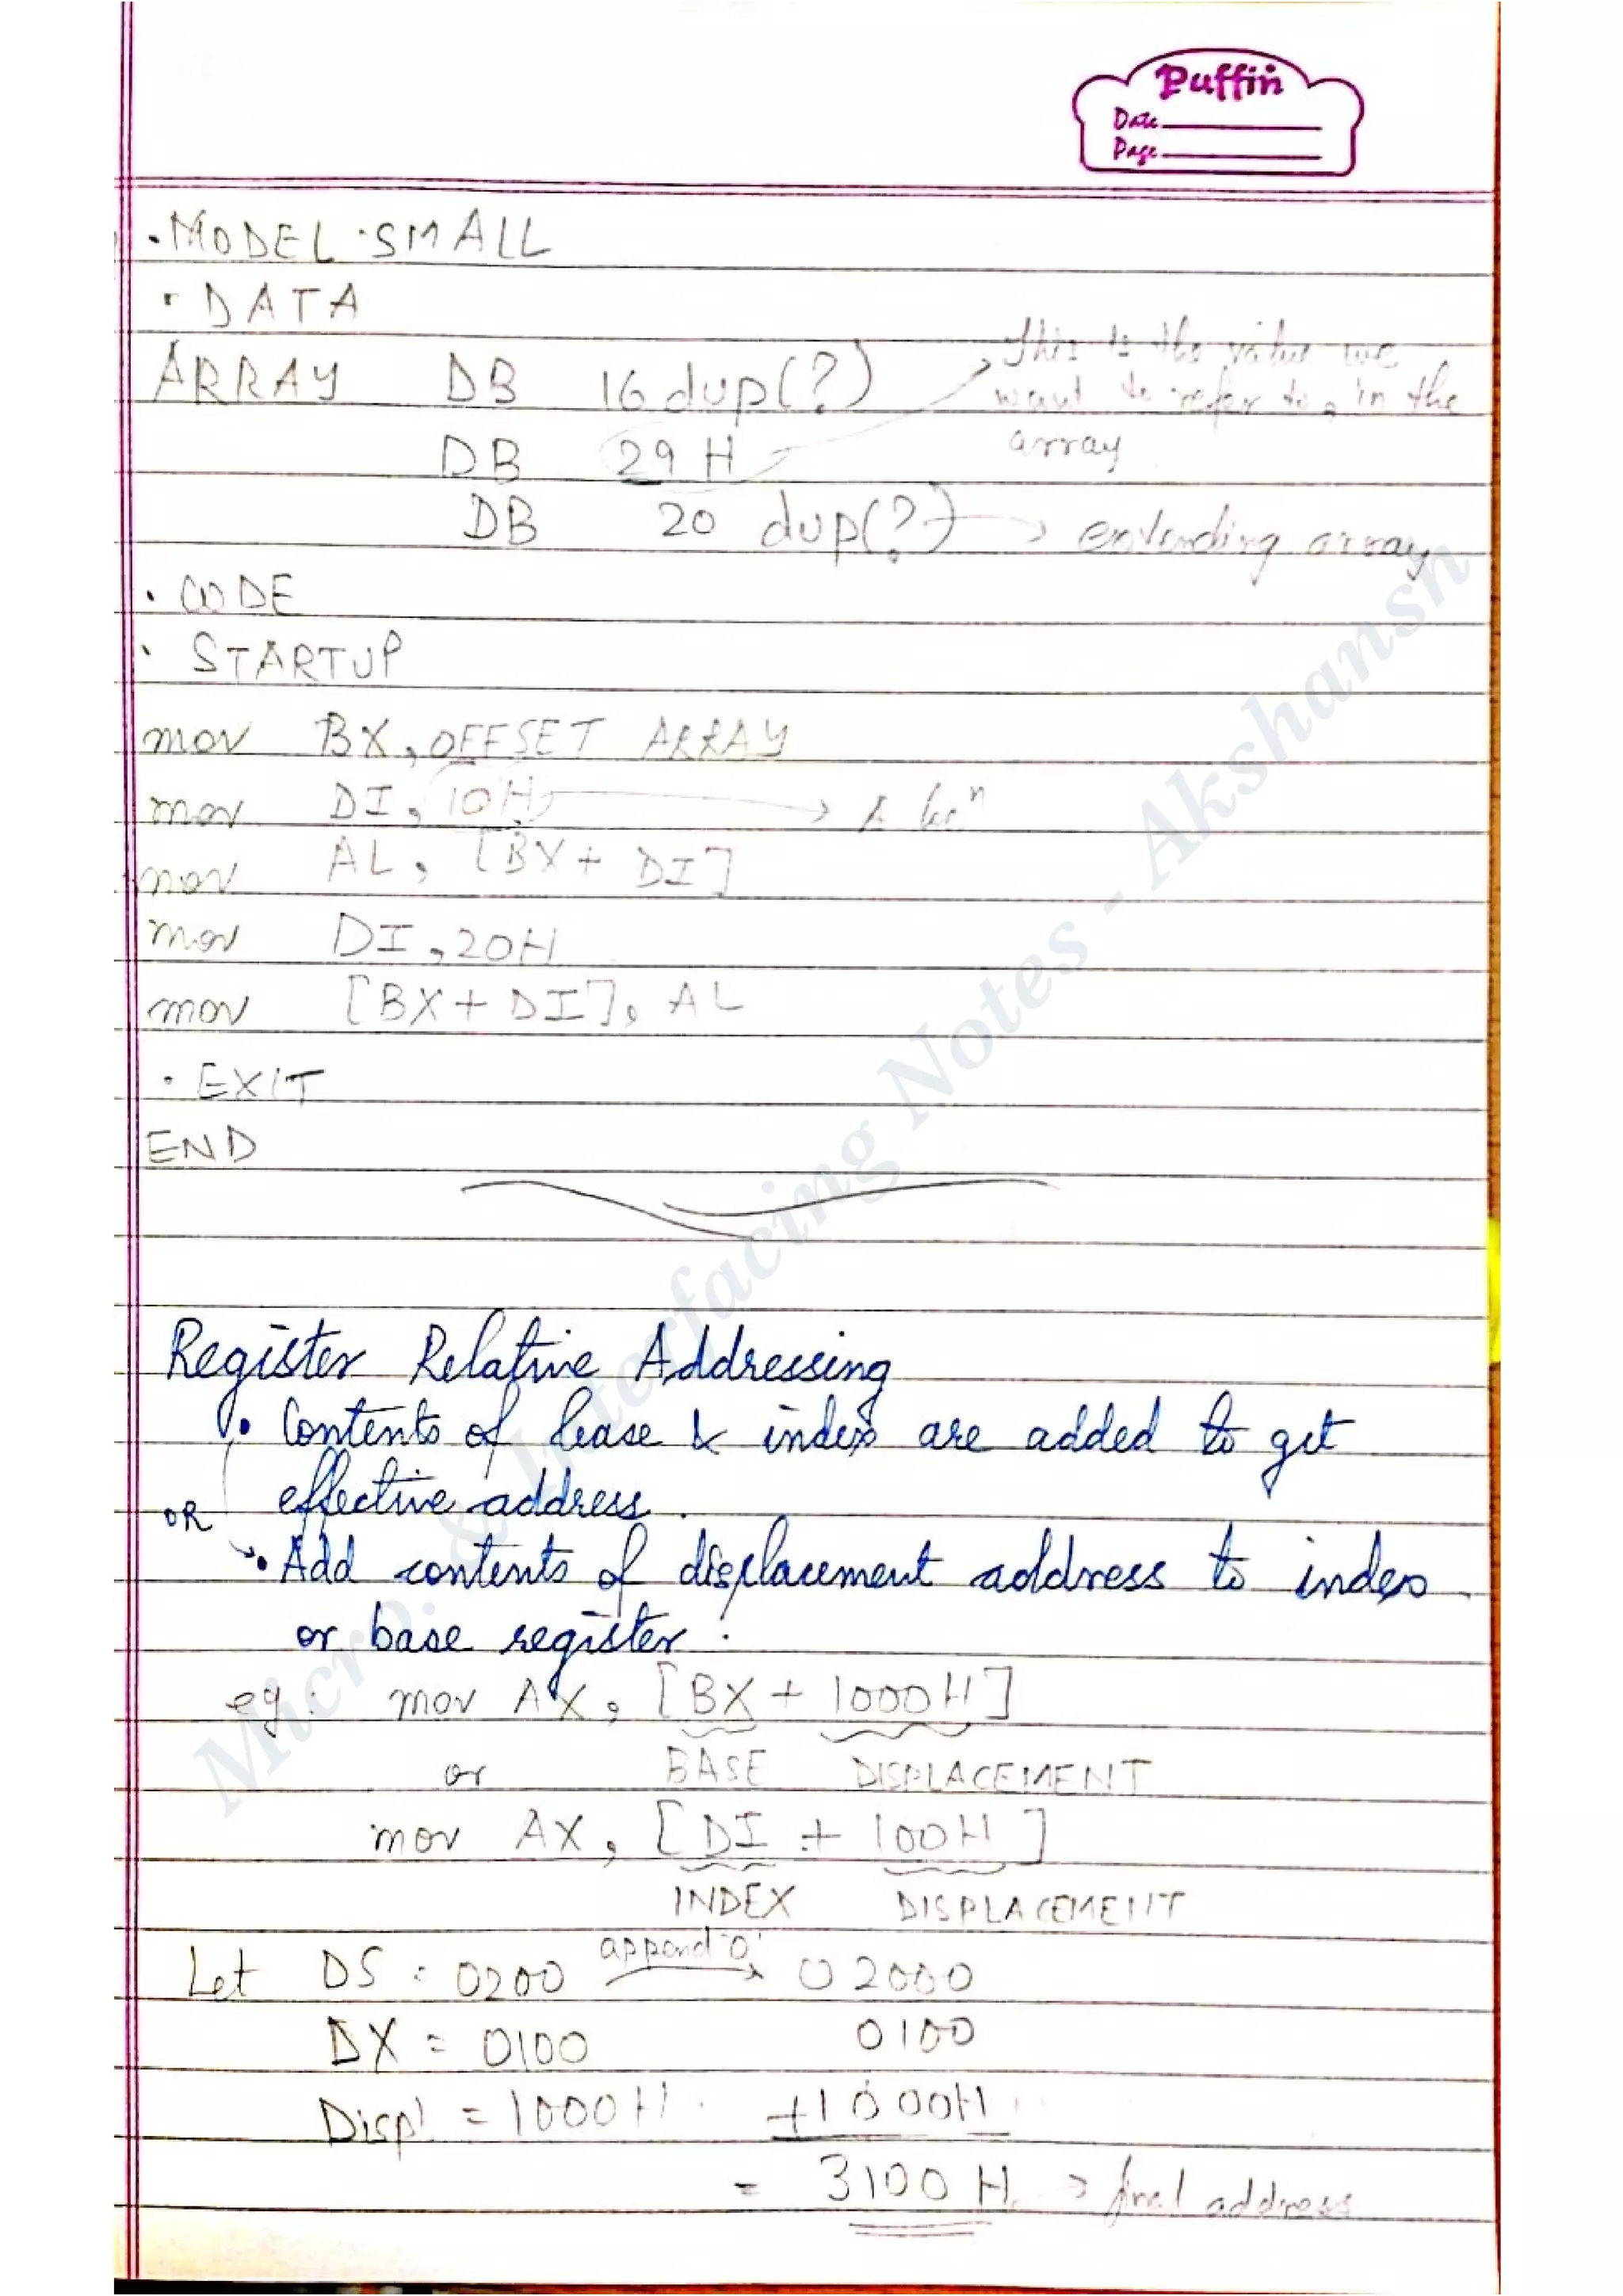 Puffin
Date
Page
.MODEL .SMALL
.DATA
ARRAY DB 16 dup(?)
This is the value we
want to refer to, in the
array
DB 29 H
DB 20 dup(?) → extending array
.CODE
.STARTUP
mov BX, OFFSET ARRAY
mov DI, 10H →
mov AL, [BX + DI]
mov DI, 20H
mov [BX + DI], AL
.EXIT
END
Register Relative Addressing
• Contents of base & index are added to get
effective address.
OR
• Add contents of displacement address to index
or base register.
eg: mov AX, [BX + 1000H]
or BASE DISPLACEMENT
mov AX, [DI + 100H]
INDEX DISPLACEMENT
Let DS : 0200 append '0' → 02000
DX = 0100 0100
Displ = 1000H +1000H
= 3100 H → final address
Micro. & Interfacing Notes - Akshansh